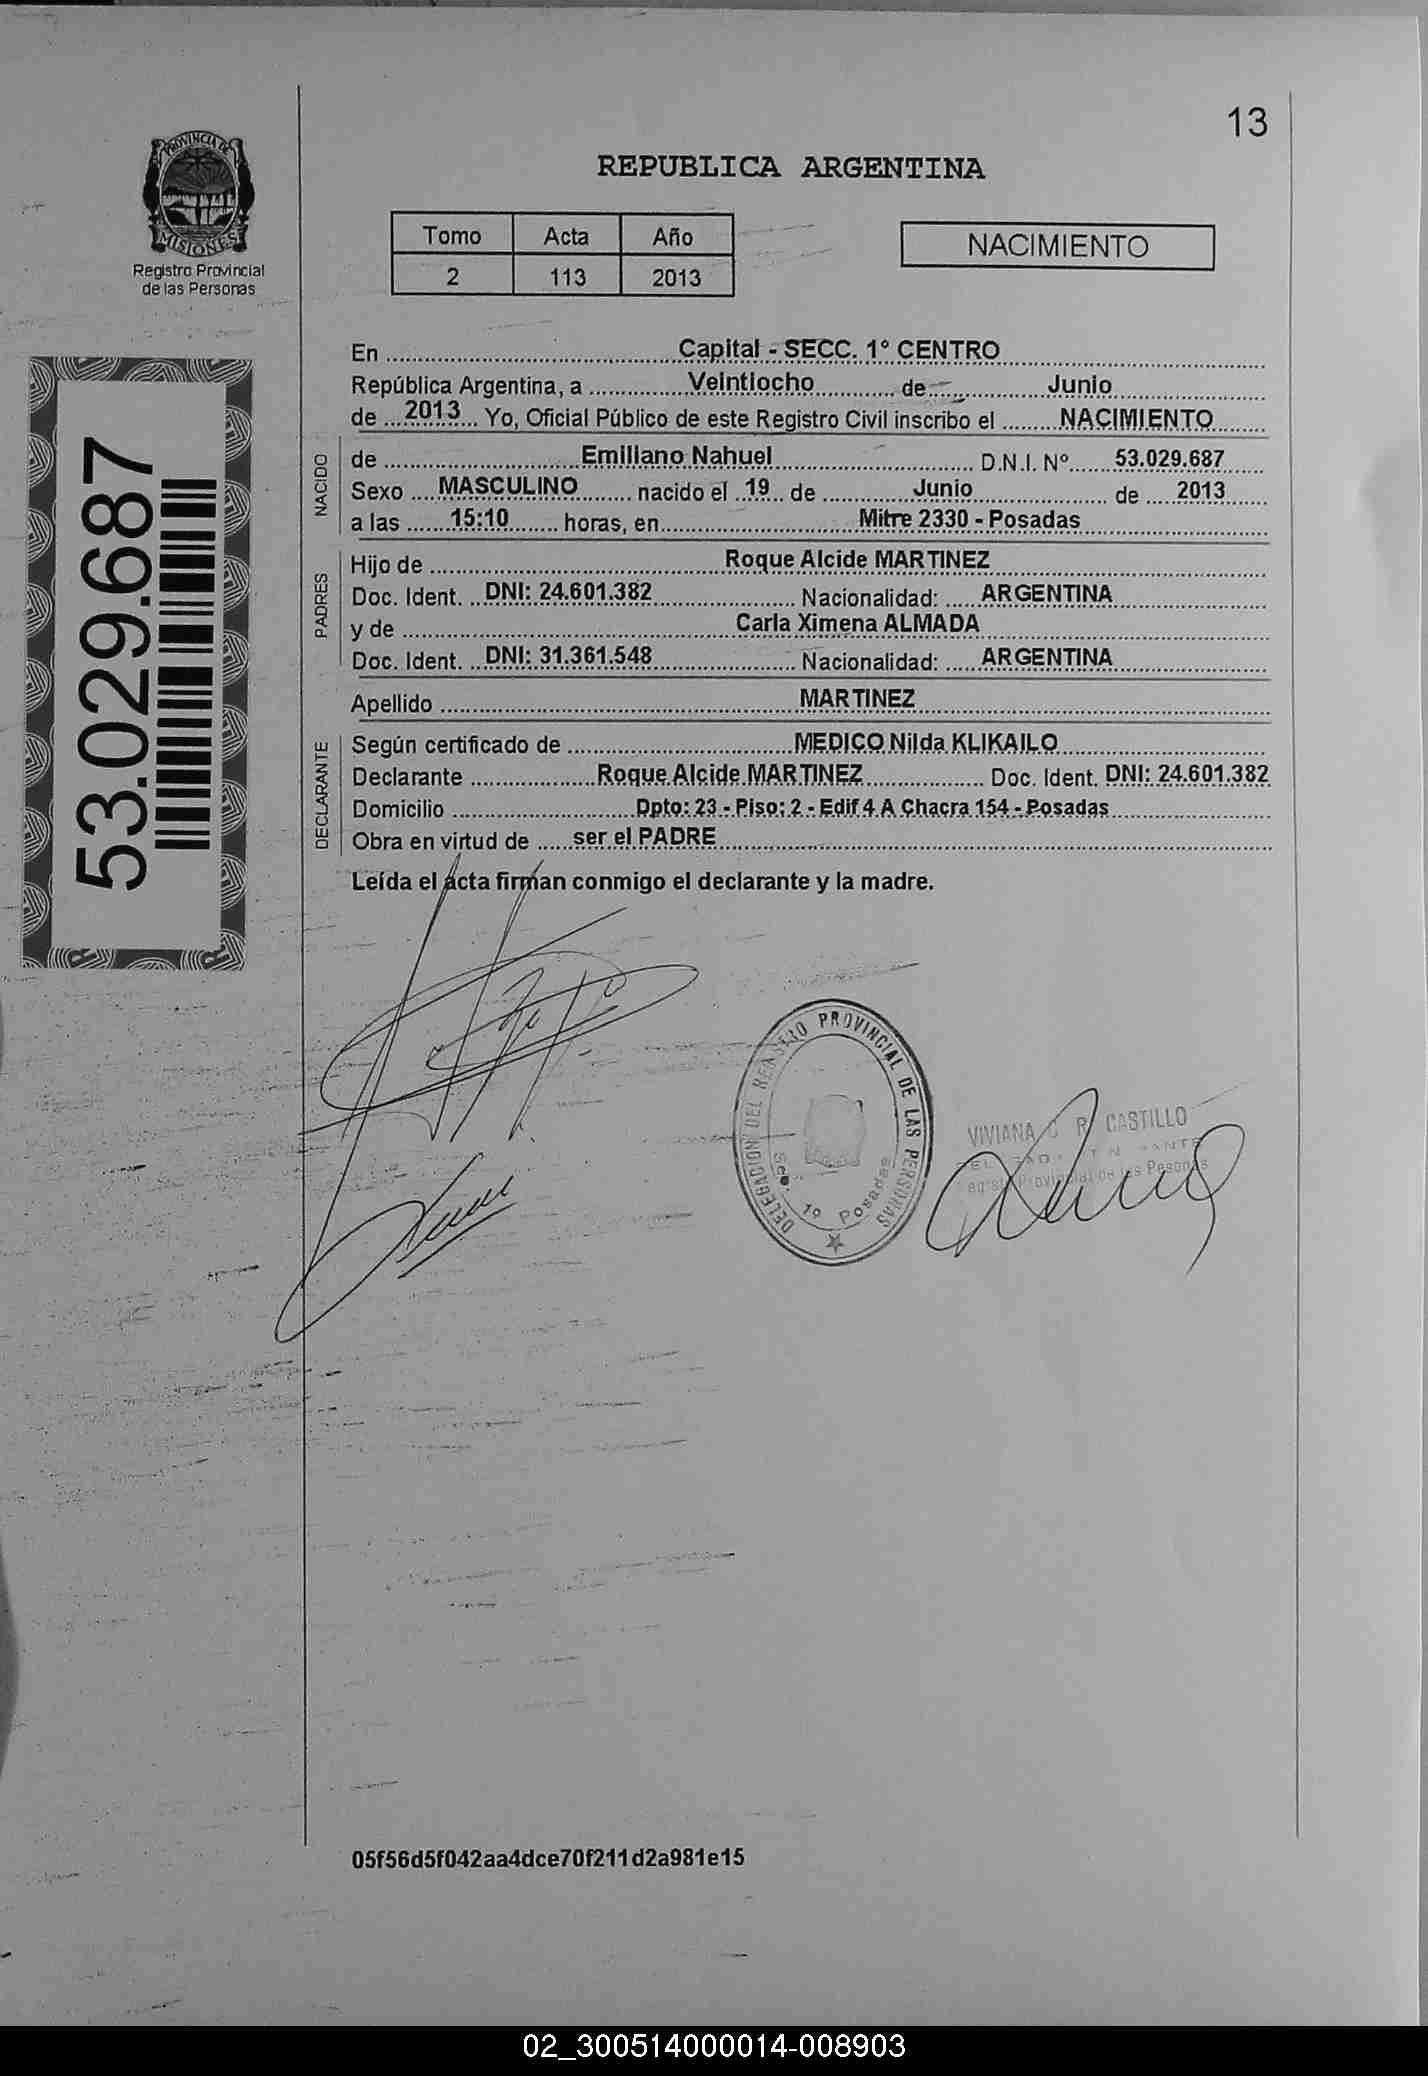 13
PROVINCIA DE
MISIONES
Registro Provincial
de las Personas
REPUBLICA ARGENTINA
Tomo Acta Año
2 113 2013
NACIMIENTO
53.029.687
En Capital - SECC. 1° CENTRO
República Argentina, a Veintiocho de Junio
de 2013 Yo, Oficial Público de este Registro Civil inscribo el NACIMIENTO
NACIDO
de Emiliano Nahuel D.N.I. Nº 53.029.687
Sexo MASCULINO nacido el 19 de Junio de 2013
a las 15:10 horas, en Mitre 2330 - Posadas
PADRES
Hijo de Roque Alcide MARTINEZ
Doc. Ident. DNI: 24.601.382 Nacionalidad: ARGENTINA
y de Carla Ximena ALMADA
Doc. Ident. DNI: 31.361.548 Nacionalidad: ARGENTINA
Apellido MARTINEZ
DECLARANTE
Según certificado de MEDICO Nilda KLIKAILO
Declarante Roque Alcide MARTINEZ Doc. Ident. DNI: 24.601.382
Domicilio Dpto: 23 - Piso: 2 - Edif 4 A Chacra 154 - Posadas
Obra en virtud de ser el PADRE
Leída el acta firman conmigo el declarante y la madre.
DELEGACION DEL REGISTRO PROVINCIAL DE LAS PERSONAS
Sec. 1º Posadas
VIVIANA C R CASTILLO
Registro Provincial de las Personas
05f56d5f042aa4dce70f211d2a981e15
02_300514000014-008903